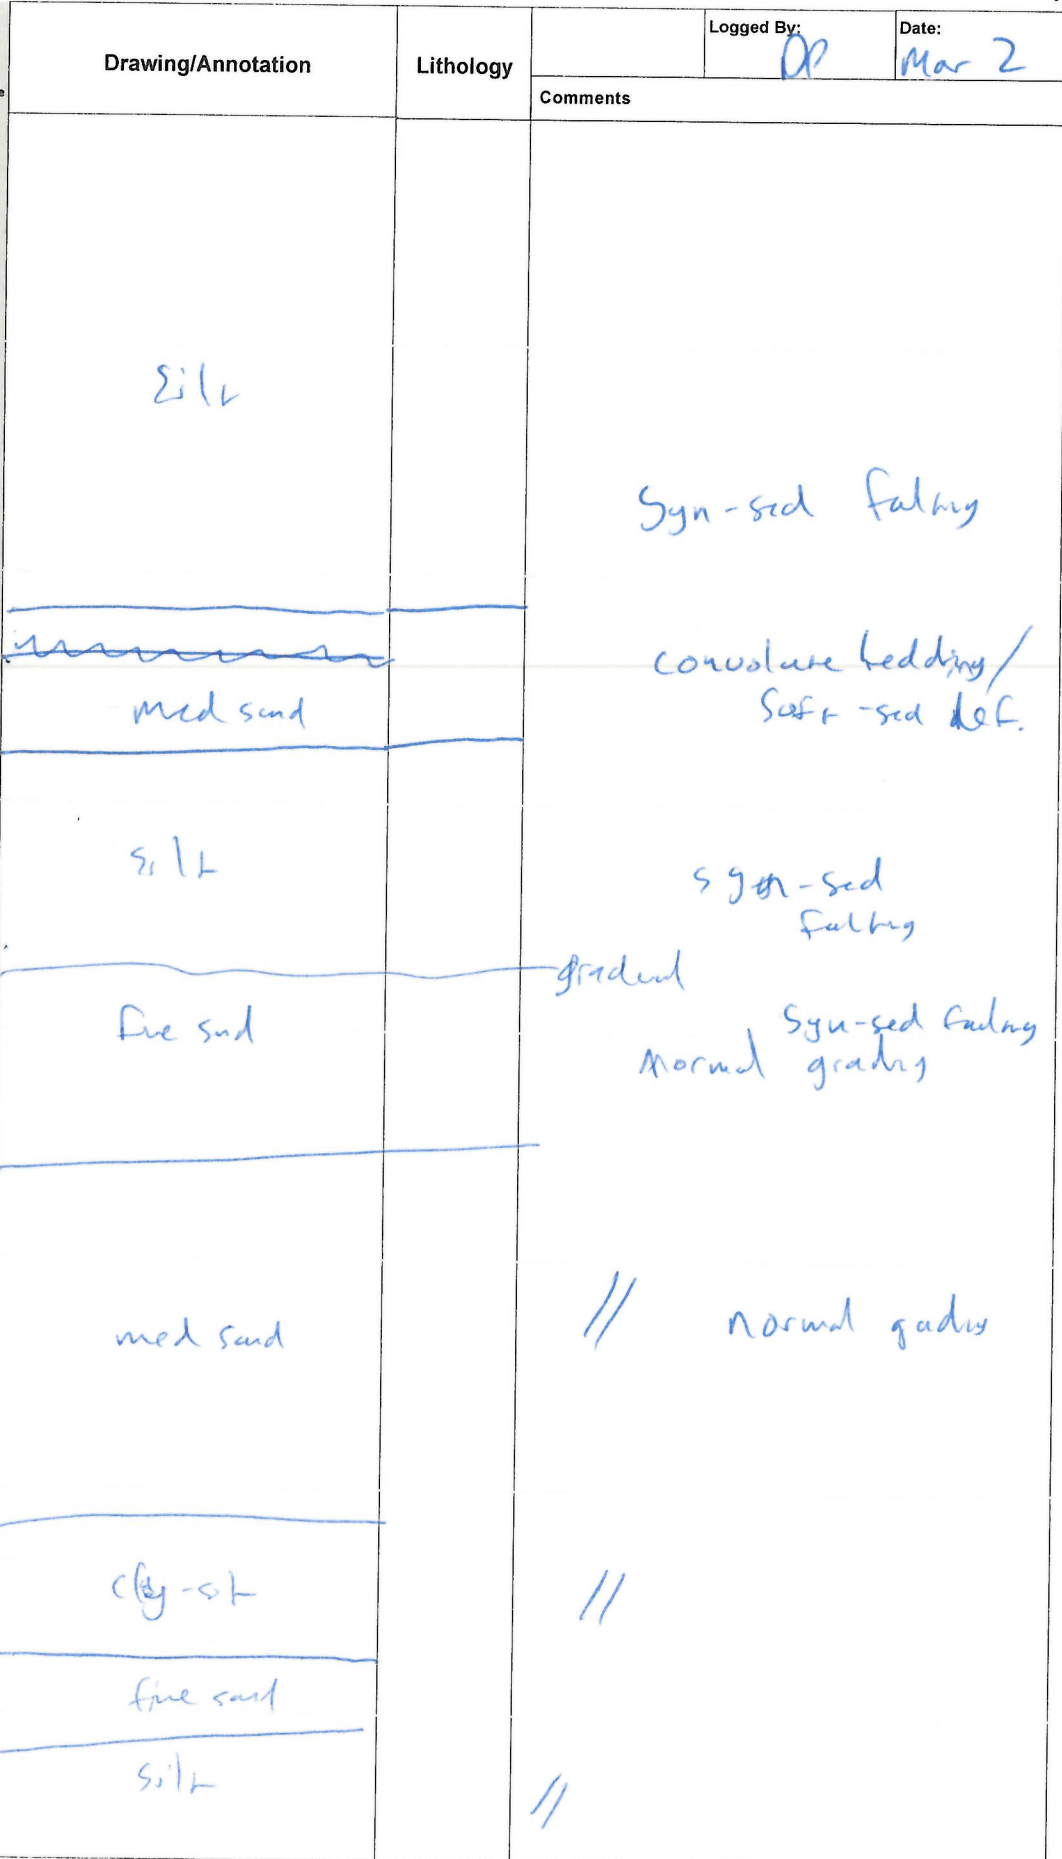 Drawing/Annotation
Lithology
Logged By:
DP
Date:
Mar 2
Comments
Silt
Syn-sed falting
convolute bedding/
Soft-sed def.
med sand
silt
syn-sed
falting
gradual
fine snd
Syn-sed falting
normal grading
med sand
// normal grading
clay-silt
//
fine sand
silt
//